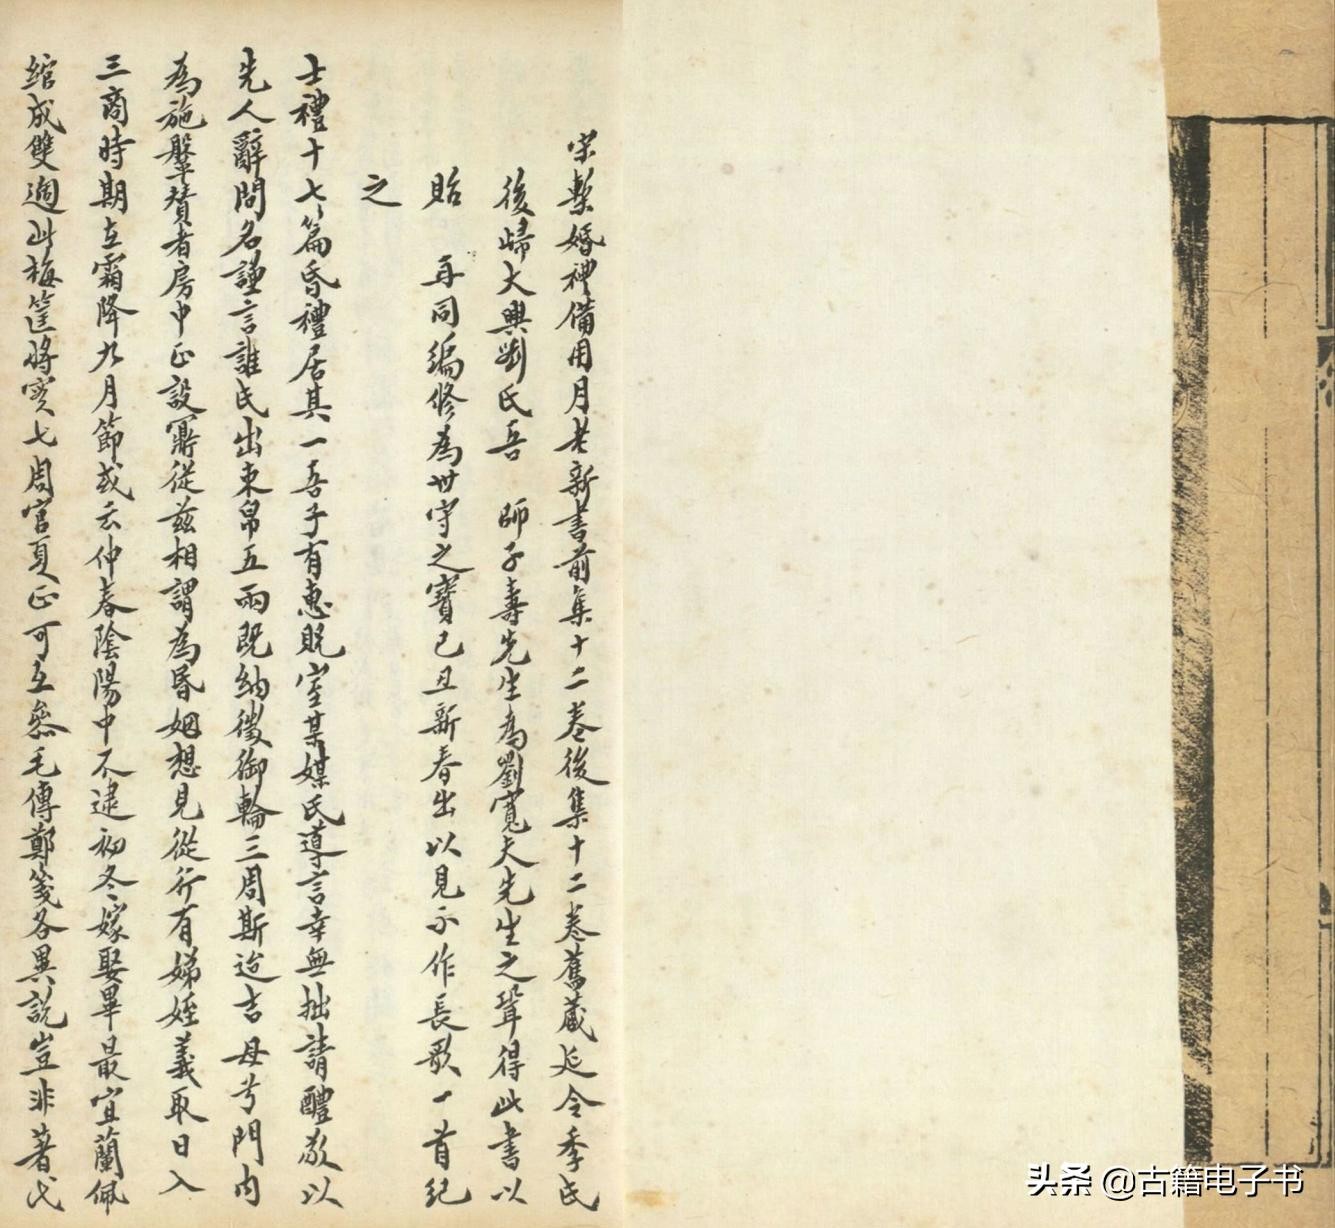 宋槧婚禮備用月老新書前集十二卷後集十二卷舊藏延令季氏
後歸大興劉氏吾 師子壽先生為劉寬夫先生之聟得此書以
貽 再同編修為世守之寶己丑新春出以見示作長歌一首紀
之
士禮十七篇昏禮居其一吾子有惠貺室某媒氏導言幸無拙請醴敬以
先人辭問名謹言誰氏出束帛五兩既納徵御輪三周斯迨吉母兮門内
為施鞶贊者房中正設鼏從兹相謂為昏姻想見從行有娣姪義取日入
三商時期在霜降九月節或云仲春陰陽中不逮初冬嫁娶畢最宜蘭佩
綰成雙迨此梅筐將實七周官夏正可互叅毛傳鄭箋各異説豈非著代
头条 @古籍电子书